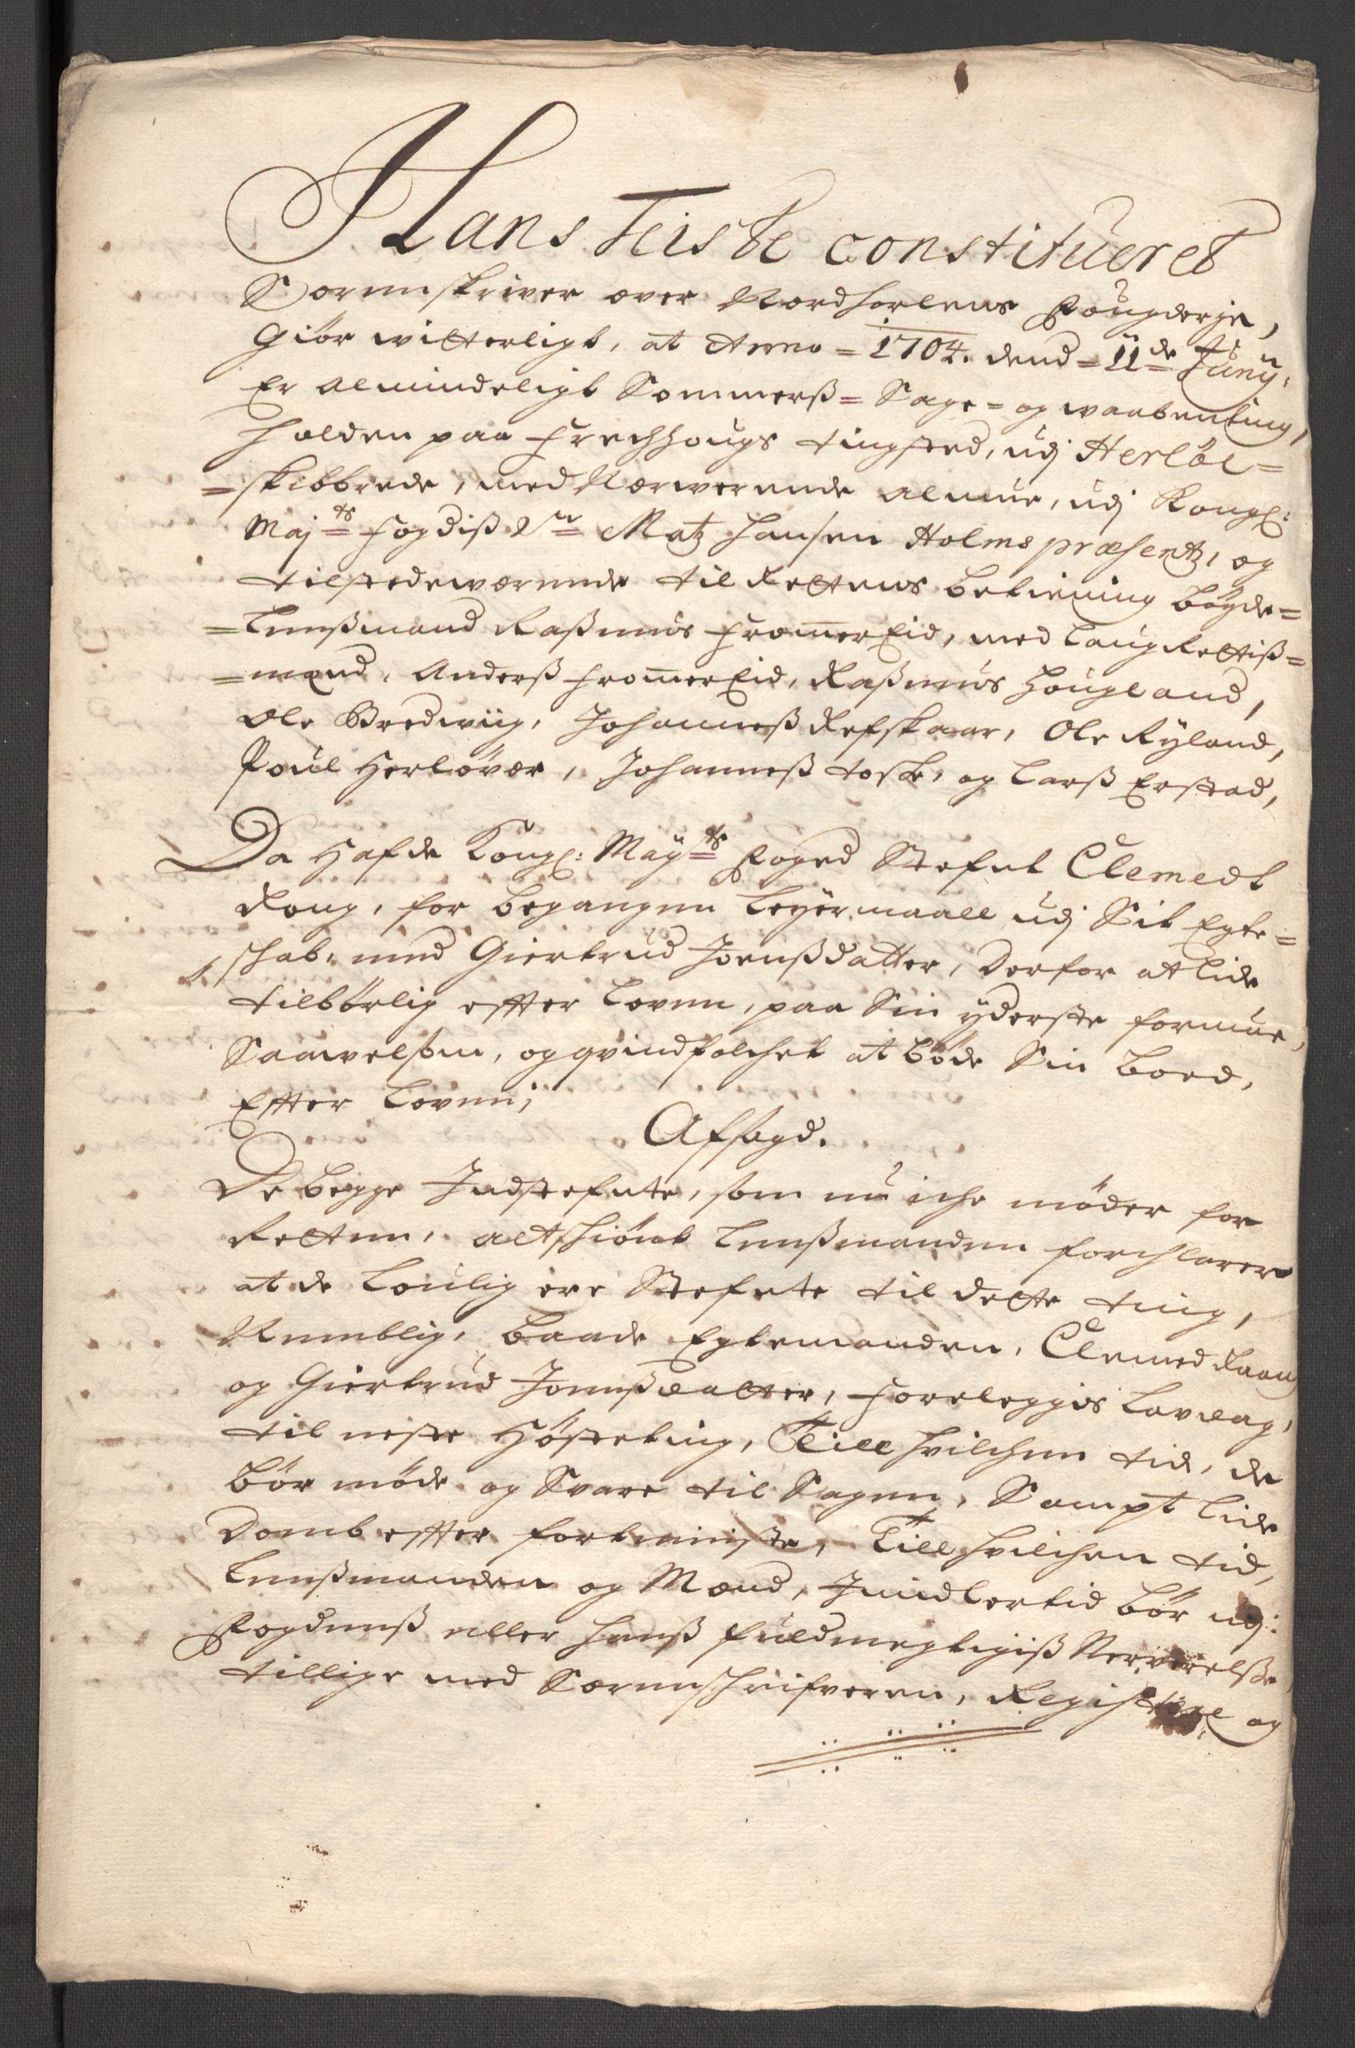 Hans Teiste constitueret
Sorenskriver over Nordhorlens Fougderje,
Giør witterligt, at Anno = 1704. dend = 11de Junÿ,
Er almindeligt Sommerß = Sage = og waabenting,
holden paa Frechhougs tingsted, udj Herløe =
= skibbrede, med Nærwerende almue, udj Kongl:
Majts fogdiß Sr Matz Hansen Holms præsentz, og
tilstedewærende til Rettens betiening bøÿde =
= Lenßmand Raßmus FrommerEid, med LaugRettiß =
= mænd, Anderß FrommerEid, Raßmus Hougland,
Ole Bredwiig, Johanneß Refskaar, Ole Rÿland,
Poul Herløvær, Johanneß toske, og Larß Erstad,
Da Hafde Kongl: Mayts Foged Stefnt Clemedt
Rong, for begangen Leÿermaall udj Sit Egte =
skab, med Giertrud Joensdatter, Derfor at lide
tilbørlig effter Loven, paa Sin ÿderste formue,
Saawelsom, og qvindfolchet at bøde Sin boed,
Effter Loven;
Afsagd.
De begge Indstefnte, som nu iche møder for
Retten, altschiønt Lenßmanden forchlarer
at de Loulig ere Stefnte til dette ting,
Nemblig, baade Egtemanden, Clemed Raang
og Giertrud Jonnßdatter, foreleggis Lavdag,
til neste Høsteting, Till hvilchen tid, de
bør møde og Svare til Sagen, Sampt lide
Domb effter fortieniste, Till hvilchen tid,
Lenßmanden og Mænd, Imidlertid bør udj:
Fogdenß eller hanß fuldmegtigiß Nerverelße,
tillige med Sorenschrifveren, Registere og